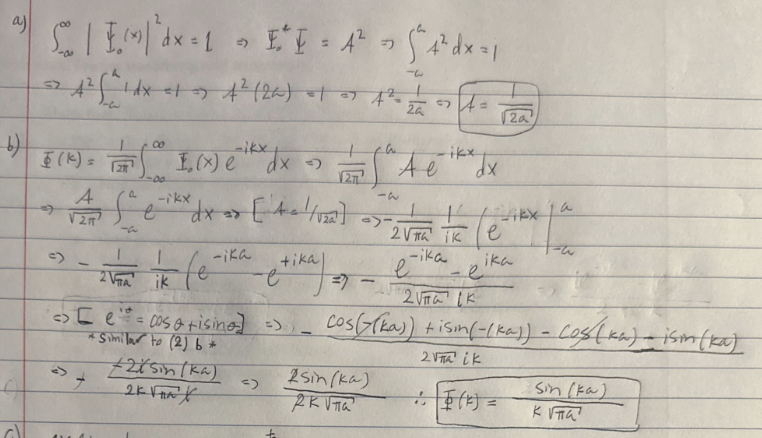 a) ∫_{-∞}^{∞} |Ψ₀(x)|² dx = 1 ⇒ Ψ₀* Ψ = A² ⇒ ∫_{-a}^{a} A² dx = 1
⇒ A² ∫_{-a}^{a} 1 dx = 1 ⇒ A² (2a) = 1 ⇒ A² = 1/2a ⇒ A = 1/√2a
b) Φ(k) = 1/√2π ∫_{-∞}^{∞} Ψ₀(x) e^{-ikx} dx ⇒ 1/√2π ∫_{-a}^{a} A e^{-ikx} dx
⇒ A/√2π ∫_{-a}^{a} e^{-ikx} dx ⇒ [A = 1/√2a] ⇒ - 1/(2√πa) 1/ik (e^{-ikx} |_{-a}^{a}
⇒ - 1/(2√πa) 1/ik (e^{-ika} - e^{+ika}) ⇒ - (e^{-ika} - e^{ika})/(2√πa ik)
⇒ [e^{iθ} = cosθ + isinθ] ⇒ - (cos(-(ka)) + isin(-(ka)) - cos(ka) - isin(ka))/(2√πa ik)
* similar to (2) b *
⇒ + (-2isin(ka))/(2k√πa i) ⇒ 2sin(ka)/(2k√πa) ∴ Φ(k) = sin(ka)/(k√πa)